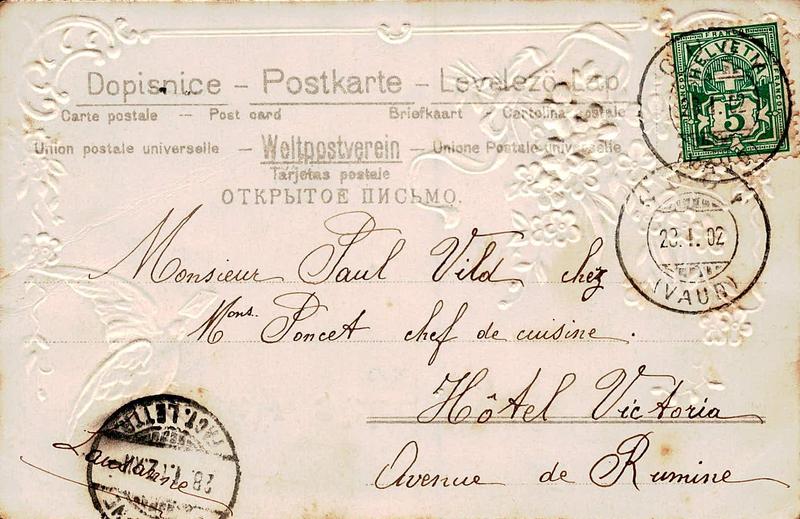 Dopisnice – Postkarte – Levelezö-Lap.
Carte postale — Post card Briefkaart — Cartolina postale
Union postale universelle – Weltpostverein – Unione Postale universelle
Tarjetas postale
ОТКРЫТОЕ ПИСЬМО.
FRANCO
HELVETIA
5
28.I.02
(VAUD)
Monsieur Paul Vild chez
Mons. Poncet chef de cuisine.
Hôtel Victoria
Avenue de Rumine
Lausanne
LETT
28.